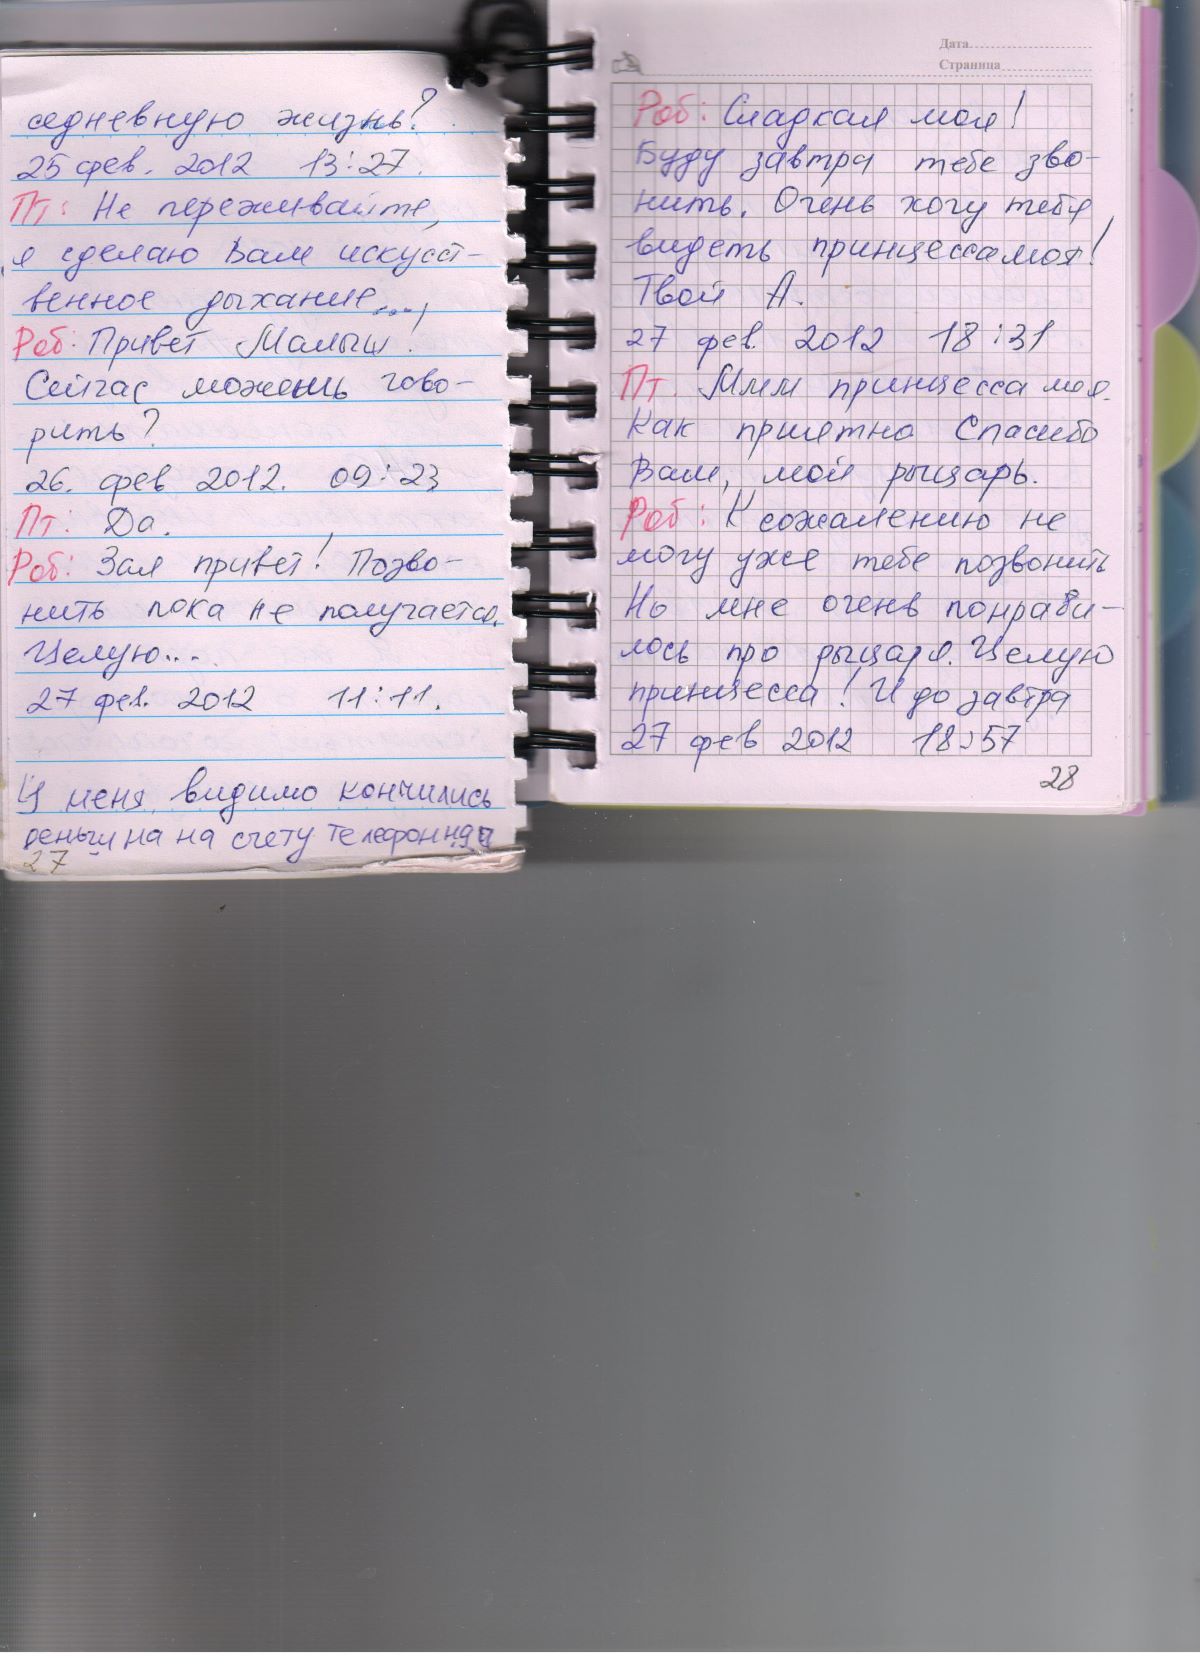 седневную жизнь?
25 фев. 2012 13:27.
Пт: Не переживайте,
я сделаю Вам искусст-
венное дыхание...!
Роб: Привет Малыш!
Сейчас можешь гово-
рить?
26. фев 2012. 09:23
Пт: Да.
Роб: Зая привет! Позво-
нить пока не получается.
Целую...
27 фев. 2012 11:11.
У меня, видимо кончились
деньги на на счету телефонная
27
Дата
Страница
Роб: Сладкая моя!
Буду завтра тебе зво-
нить. Очень хочу тебя
видеть принцесса моя!
Твой А.
27 фев. 2012 18:31
Пт. Ммм принцесса моя.
Как приятно Спасибо
Вам, мой рыцарь.
Роб: К сожалению не
могу уже тебе позвонить
Но мне очень понрави-
лось про рыцаря. Целую
принцесса! И до завтра
27 фев 2012 18:57
28